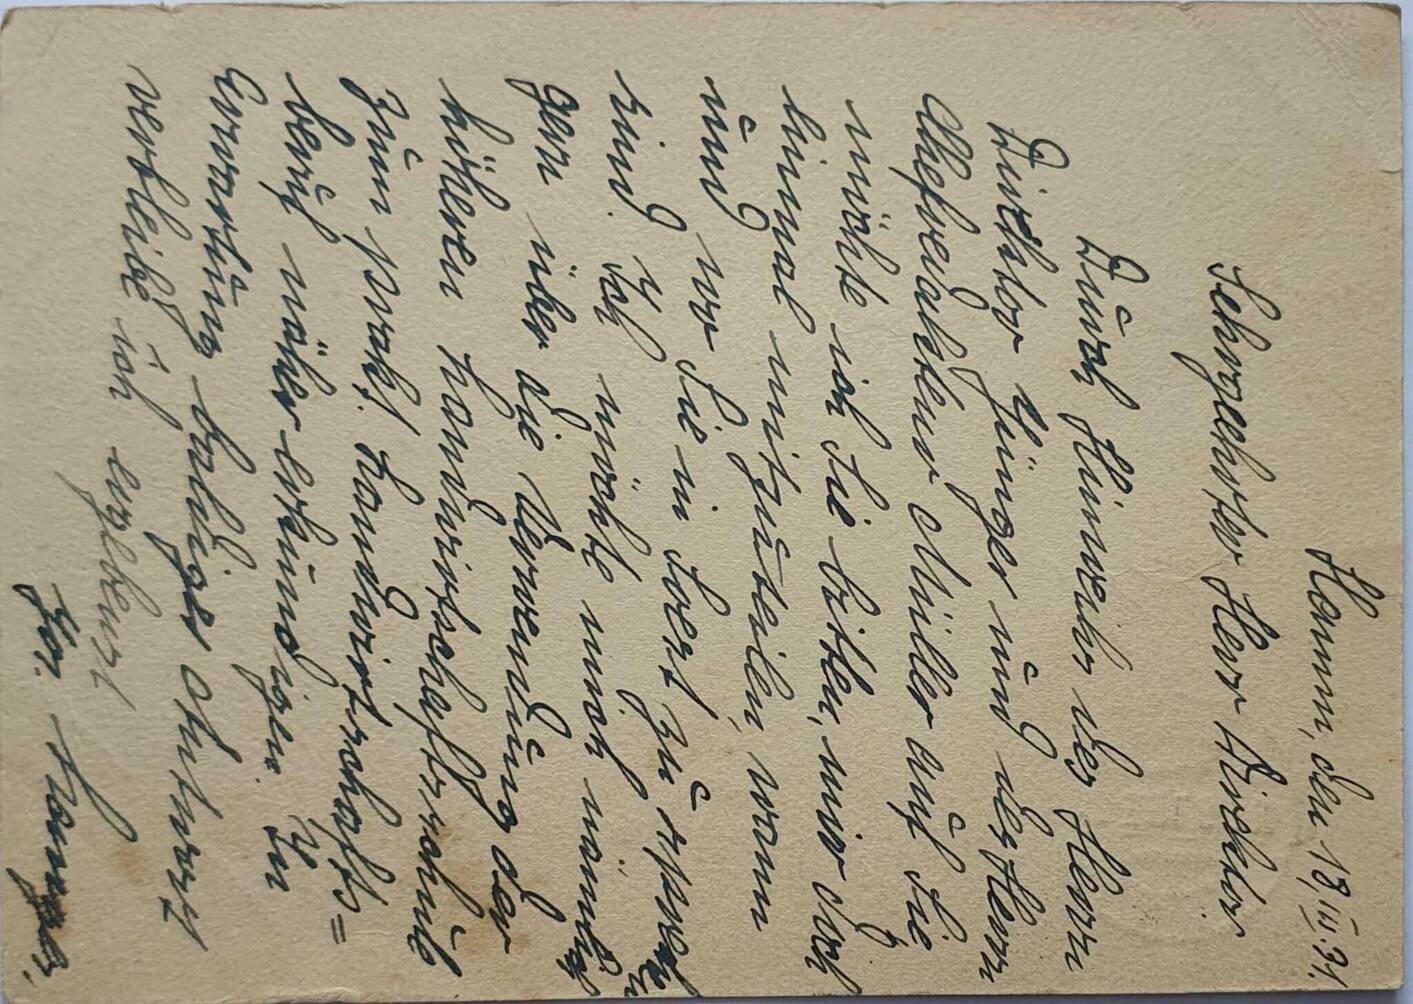 Hamm, den 18. III. 31.
Sehrgeehrter Herr Direktor
Durch Hinweis des Herrn
Direktor Jünger und des Herrn
Chefredakteur Müller auf Sie
möchte ich Sie bitten, mir doch
einmal mitzuteilen, wann
und wo Sie in Soest zu sprechen
sind. Ich möchte mich nämlich
gern über die Verwendung der
höheren Landwirtschaftsschule
zum prakt. Landwirtschafts=
beruf näher erkundigen. In
Erwartung baldiger Antwort
verbleibe ich ergebenst
Jos.